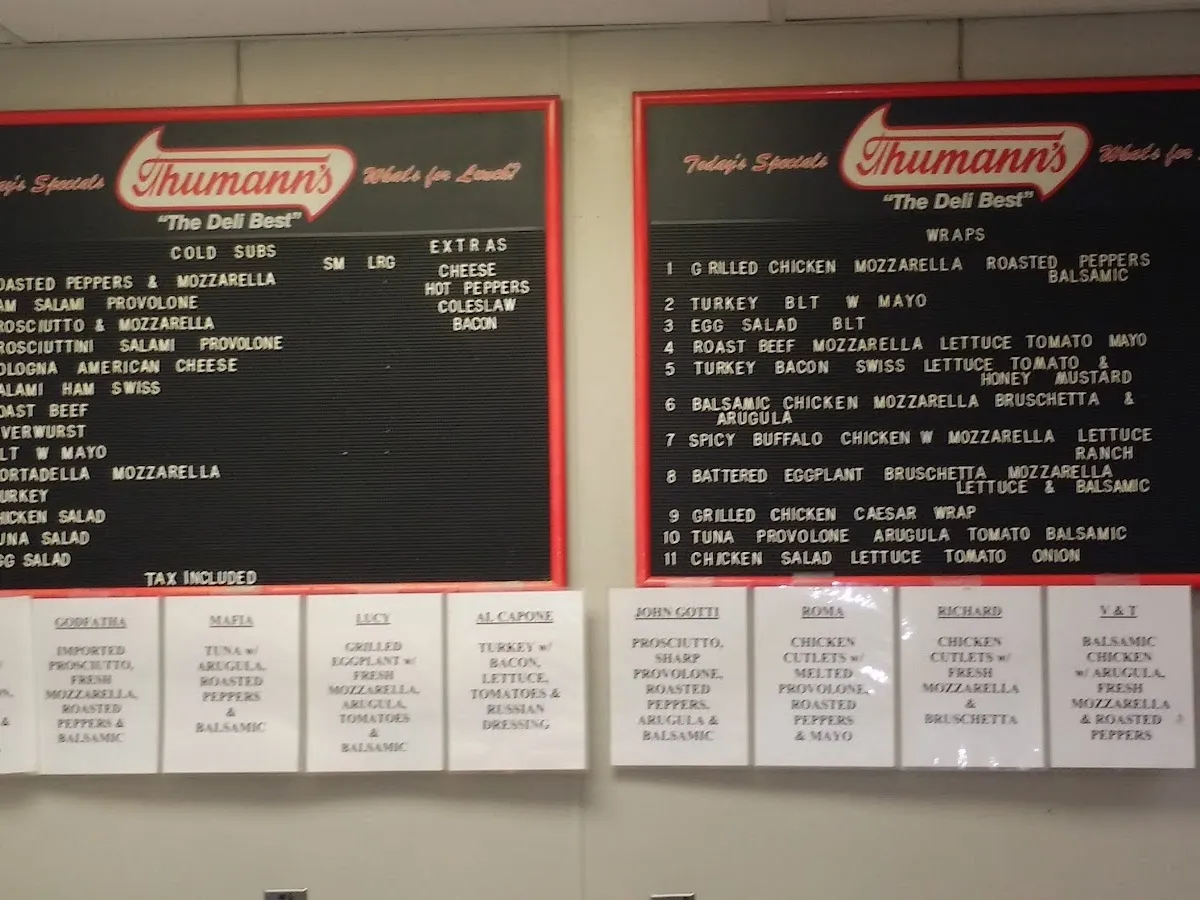 Specials
Thumann's
What's for Lunch?
"The Deli Best"
COLD SUBS
SM LRG
EXTRAS
OASTED PEPPERS & MOZZARELLA
AM SALAMI PROVOLONE
ROSCIUTTO & MOZZARELLA
ROSCIUTTINI SALAMI PROVOLONE
OLOGNA AMERICAN CHEESE
ALAMI HAM SWISS
OAST BEEF
VERWURST
LT W MAYO
ORTADELLA MOZZARELLA
URKEY
HICKEN SALAD
UNA SALAD
GG SALAD
CHEESE
HOT PEPPERS
COLESLAW
BACON
TAX INCLUDED
Today's Specials
Thumann's
What's for
"The Deli Best"
WRAPS
1 GRILLED CHICKEN MOZZARELLA ROASTED PEPPERS
BALSAMIC
2 TURKEY BLT W MAYO
3 EGG SALAD BLT
4 ROAST BEEF MOZZARELLA LETTUCE TOMATO MAYO
5 TURKEY BACON SWISS LETTUCE TOMATO &
HONEY MUSTARD
6 BALSAMIC CHICKEN MOZZARELLA BRUSCHETTA &
ARUGULA
7 SPICY BUFFALO CHICKEN W MOZZARELLA LETTUCE
RANCH
8 BATTERED EGGPLANT BRUSCHETTA MOZZARELLA
LETTUCE & BALSAMIC
9 GRILLED CHICKEN CAESAR WRAP
10 TUNA PROVOLONE ARUGULA TOMATO BALSAMIC
11 CHICKEN SALAD LETTUCE TOMATO ONION
GODFATHA
IMPORTED
PROSCIUTTO,
FRESH
MOZZARELLA,
ROASTED
PEPPERS &
BALSAMIC
MAFIA
TUNA w/
ARUGULA,
ROASTED
PEPPERS
&
BALSAMIC
LUCY
GRILLED
EGGPLANT w/
FRESH
MOZZARELLA,
ARUGULA,
TOMATOES
&
BALSAMIC
AL CAPONE
TURKEY w/
BACON,
LETTUCE,
TOMATOES &
RUSSIAN
DRESSING
JOHN GOTTI
PROSCIUTTO,
SHARP
PROVOLONE,
ROASTED
PEPPERS,
ARUGULA &
BALSAMIC
ROMA
CHICKEN
CUTLETS w/
MELTED
PROVOLONE,
ROASTED
PEPPERS
& MAYO
RICHARD
CHICKEN
CUTLETS w/
FRESH
MOZZARELLA
&
BRUSCHETTA
V & T
BALSAMIC
CHICKEN
w/ ARUGULA,
FRESH
MOZZARELLA
& ROASTED
PEPPERS